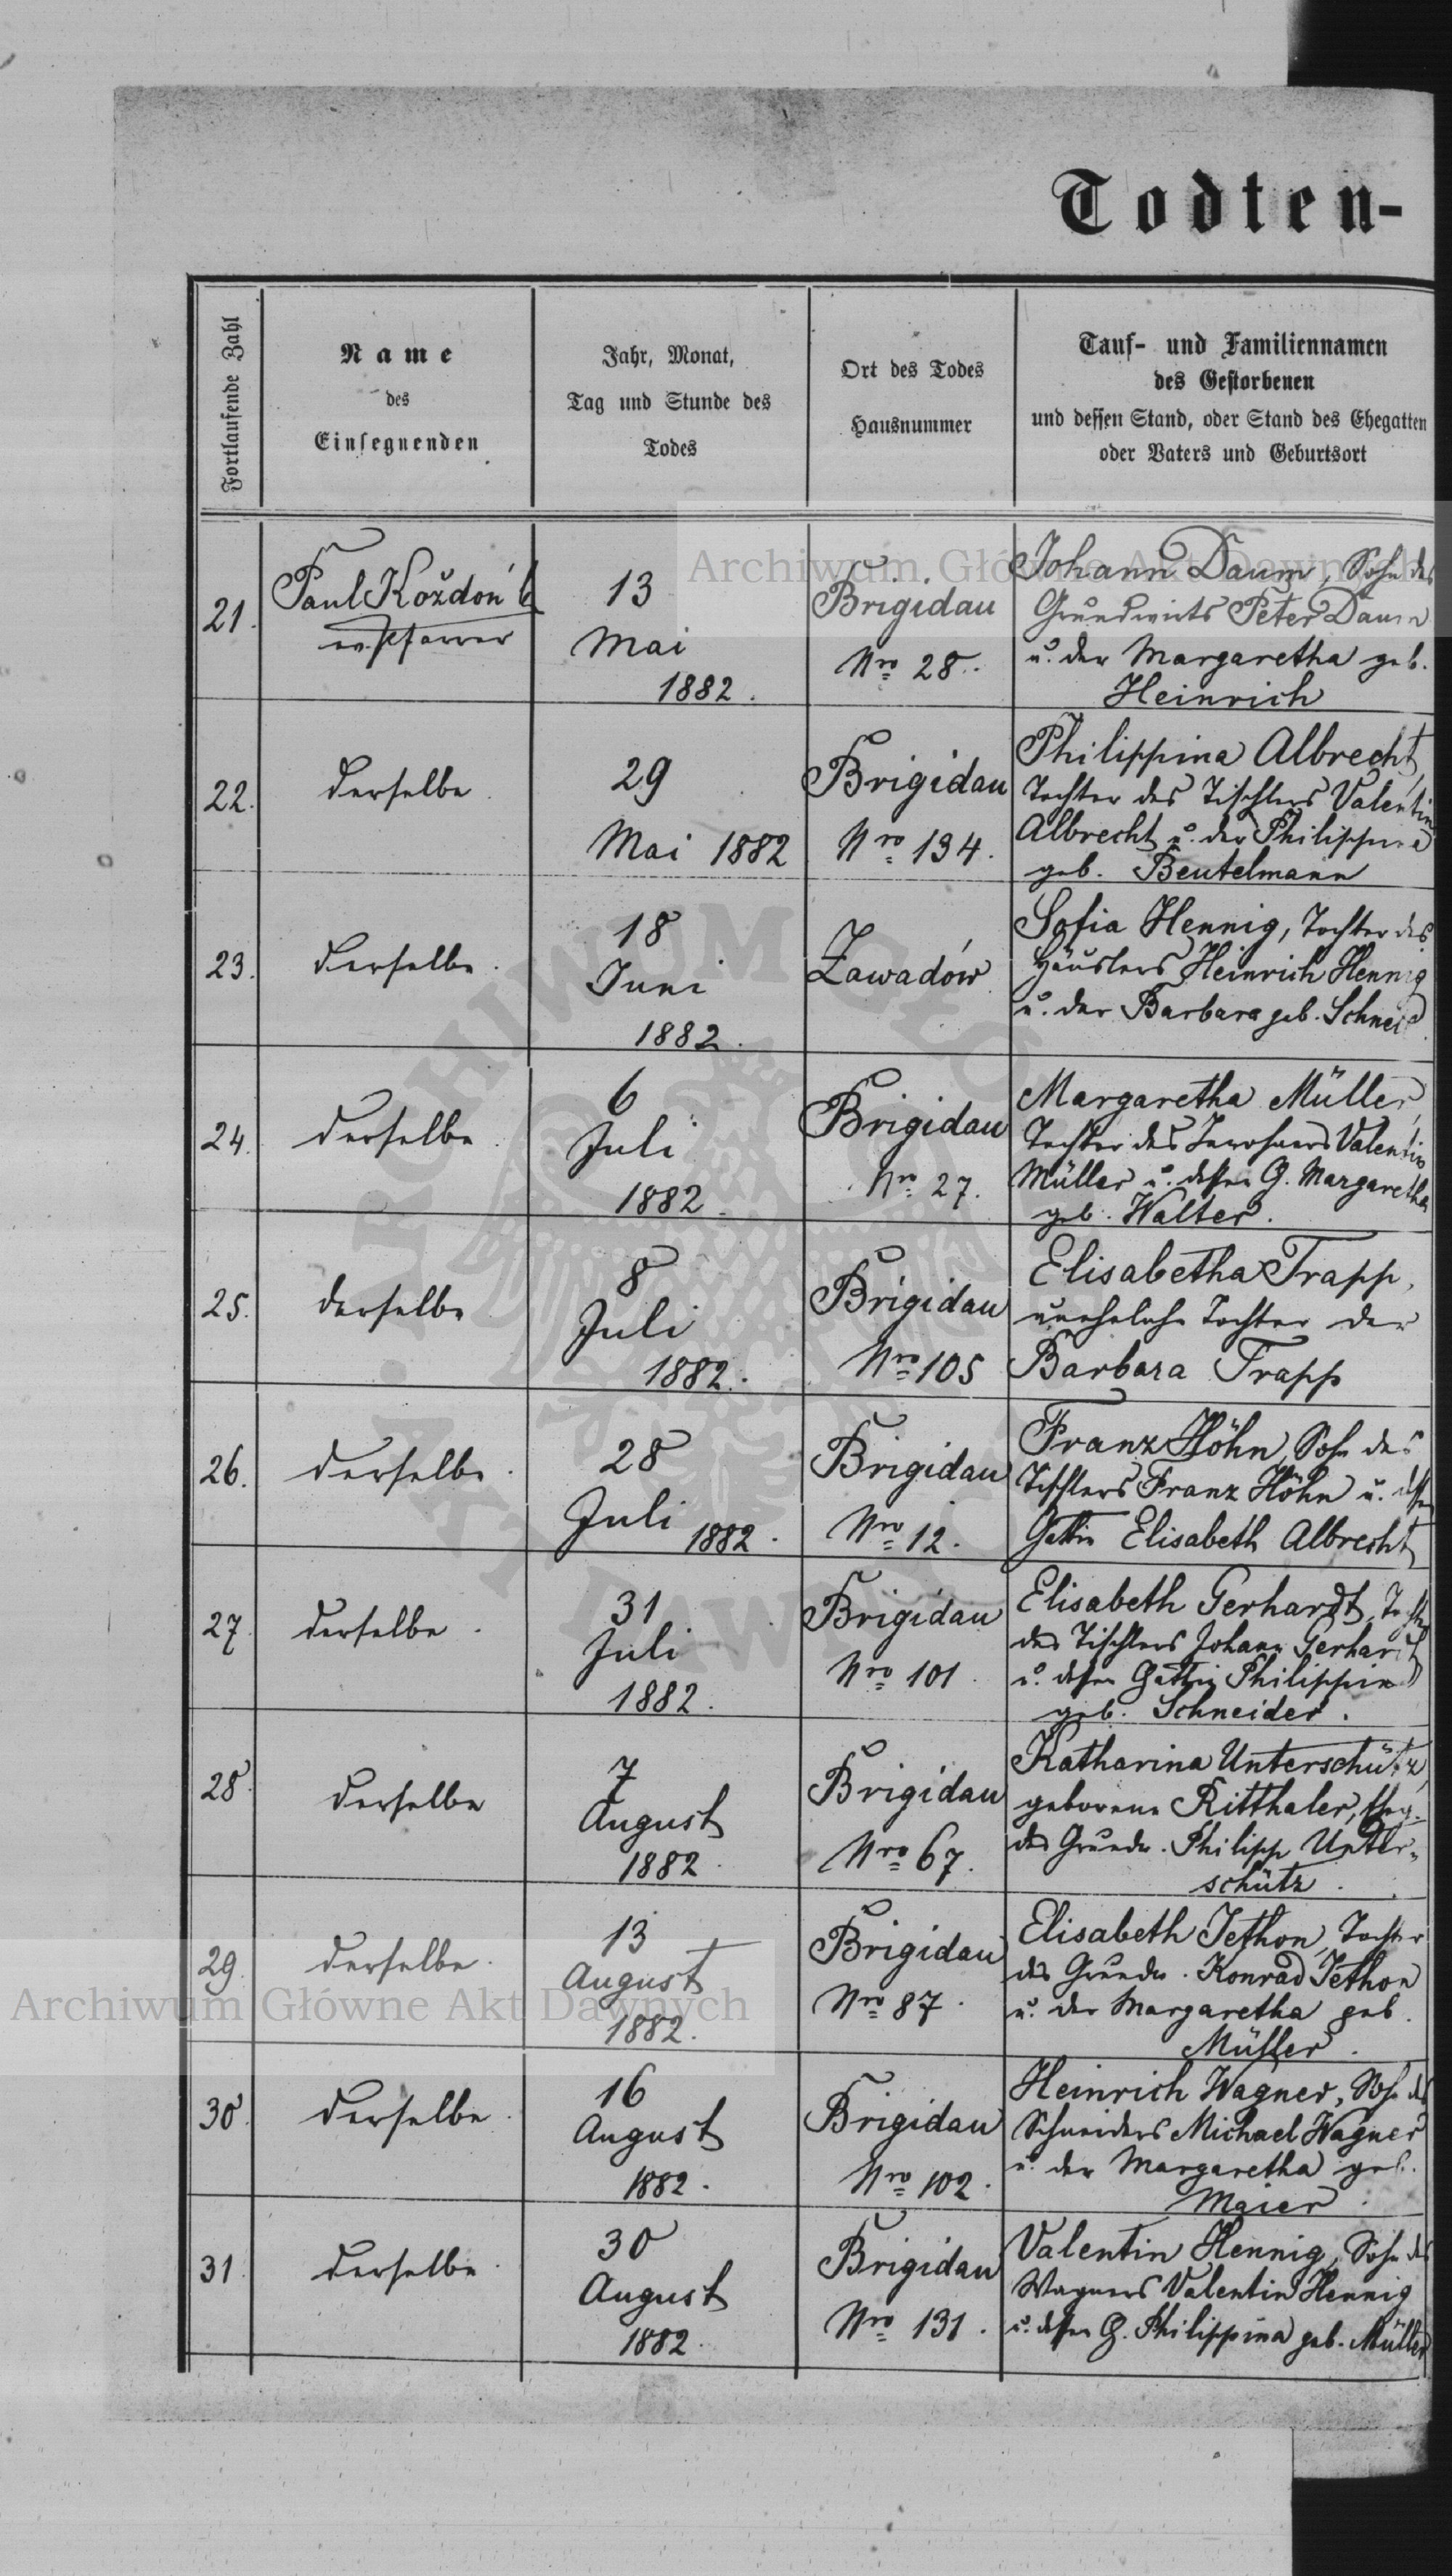 Todten-
Fortlaufende Zahl
Name
des
Einsegnenden
Jahr, Monat,
Tag und Stunde des
Todes
Ort des Todes
Hausnummer
Tauf- und Familiennamen
des Gestorbenen
und dessen Stand, oder Stand des Ehegatten
oder Vaters und Geburtsort
21.
Paul Koždoń
ev. Pfarrer
13
Mai
1882.
Brigidau
Nro 28.
Johann Daum, Sohn des
Grundwirts Peter Daum
u. der Margaretha geb.
Heinrich
22.
derselbe
29
Mai 1882
Brigidau
Nro 134.
Philippina Albrecht,
Tochter des Tischlers Valentin
Albrecht u. der Philippina
geb. Beutelmann
23.
derselbe.
18
Juni
1882.
Zawadów
Sofia Hennig, Tochter des
Häuslers Heinrich Hennig
u. der Barbara geb. Schneid
24.
derselbe.
6
Juli
1882.
Brigidau
Nro 27.
Margaretha Müller,
Tochter des Inwohners Valentin
Müller u. dessen G. Margaretha
geb. Walter.
25.
derselbe
8
Juli
1882.
Brigidau
Nro 105
Elisabetha Trapp,
uneheliche Tochter der
Barbara Trapp
26.
derselbe.
28
Juli
1882.
Brigidau
Nro 12.
Franz Höhn, Sohn des
Tischlers Franz Höhn u. dessen
Gattin Elisabeth Albrecht
27.
derselbe.
31
Juli
1882.
Brigidau
Nro 101.
Elisabeth Gerhardt, Tochter
des Tischlers Johann Gerhardt
u. dessen Gattin Philippine
geb. Schneider.
28.
derselbe
7
August
1882.
Brigidau
Nro 67.
Katharina Unterschütz,
geborene Ritthaler,
des Grundw. Philipp Unter-
schütz.
29.
derselbe.
13
August
1882.
Brigidau
Nro 87.
Elisabeth Jethon, Tochter
des Grundw. Konrad Jethon
u. der Margaretha geb.
Müller.
30.
derselbe.
16
August
1882.
Brigidau
Nro 102.
Heinrich Wagner, Sohn des
Schneiders Michael Wagner
u. der Margaretha geb.
Maier.
31.
derselbe.
30
August
1882.
Brigidau
Nro 131.
Valentin Hennig, Sohn des
Wagners Valentin Hennig
u. dessen G. Philippina geb. Müller
Archiwum Główne Akt Dawnych
Archiwum Główne Akt Dawnych
ARCHIWUM GŁÓWNE AKT DAWNYCH